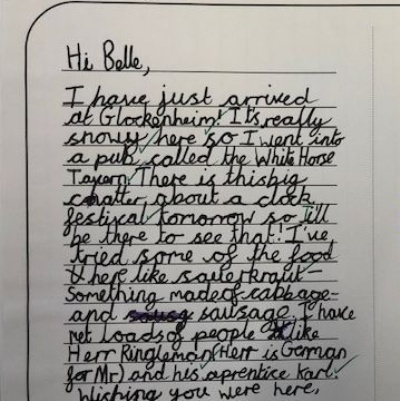 Hi Belle,
I have just arrived
at Glockenheim! It's really
snowy here so I went into
a pub called the White Horse
Tavern. There is this big
chatter about a clock
festival tomorrow so I'll
be there to see that! I've
tried some of the food
here like sauerkraut -
Something made of cabbage -
and sausage. I have
met loads of people like
Herr Ringleman (Herr is German
for Mr) and his aprentice Karl.
Wishing you were here,